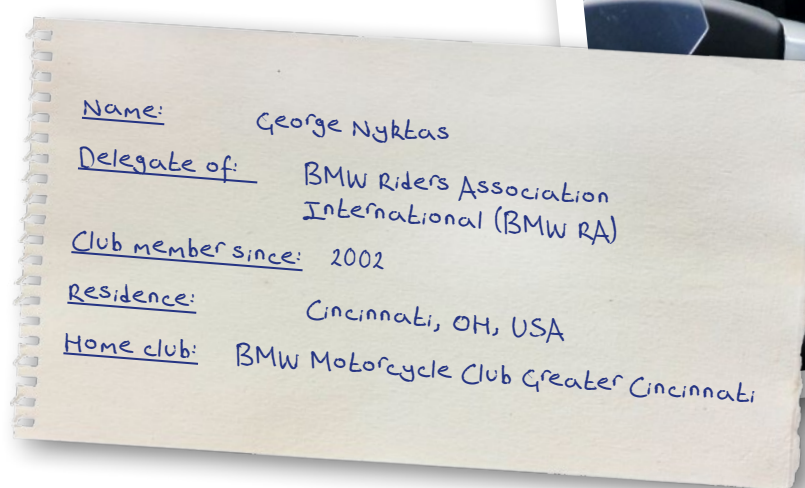 Name: George Nyktas
Delegate of: BMW Riders Association
International (BMW RA)
Club member since: 2002
Residence: Cincinnati, OH, USA
Home club: BMW Motorcycle Club Greater Cincinnati